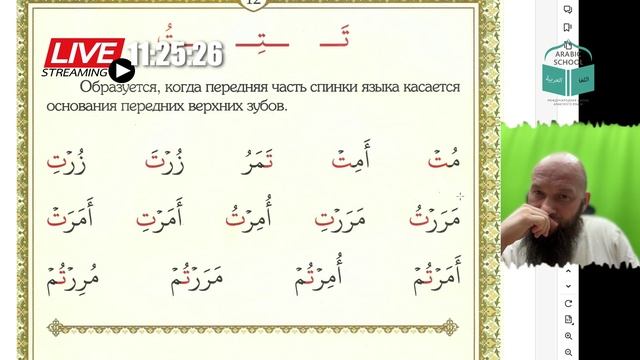 12
تَـ ـتِـ ـتُ
LIVE
STREAMING
11:25:26
ARABIC
SCHOOL
اللغة العربية
Образуется, когда передняя часть спинки языка касается
основания передних верхних зубов.
مُتْ أَمِتْ تَمَرُ زُرْتَ زُرْتِ
مَرَرْتُ مَرَرْتِ أُمِرْتُ أَمَرْتِ أَمَرَتْ
أَمَرْتُمْ أُمِرْتُمْ مَرَرْتُمْ مُرِرْتُمْ